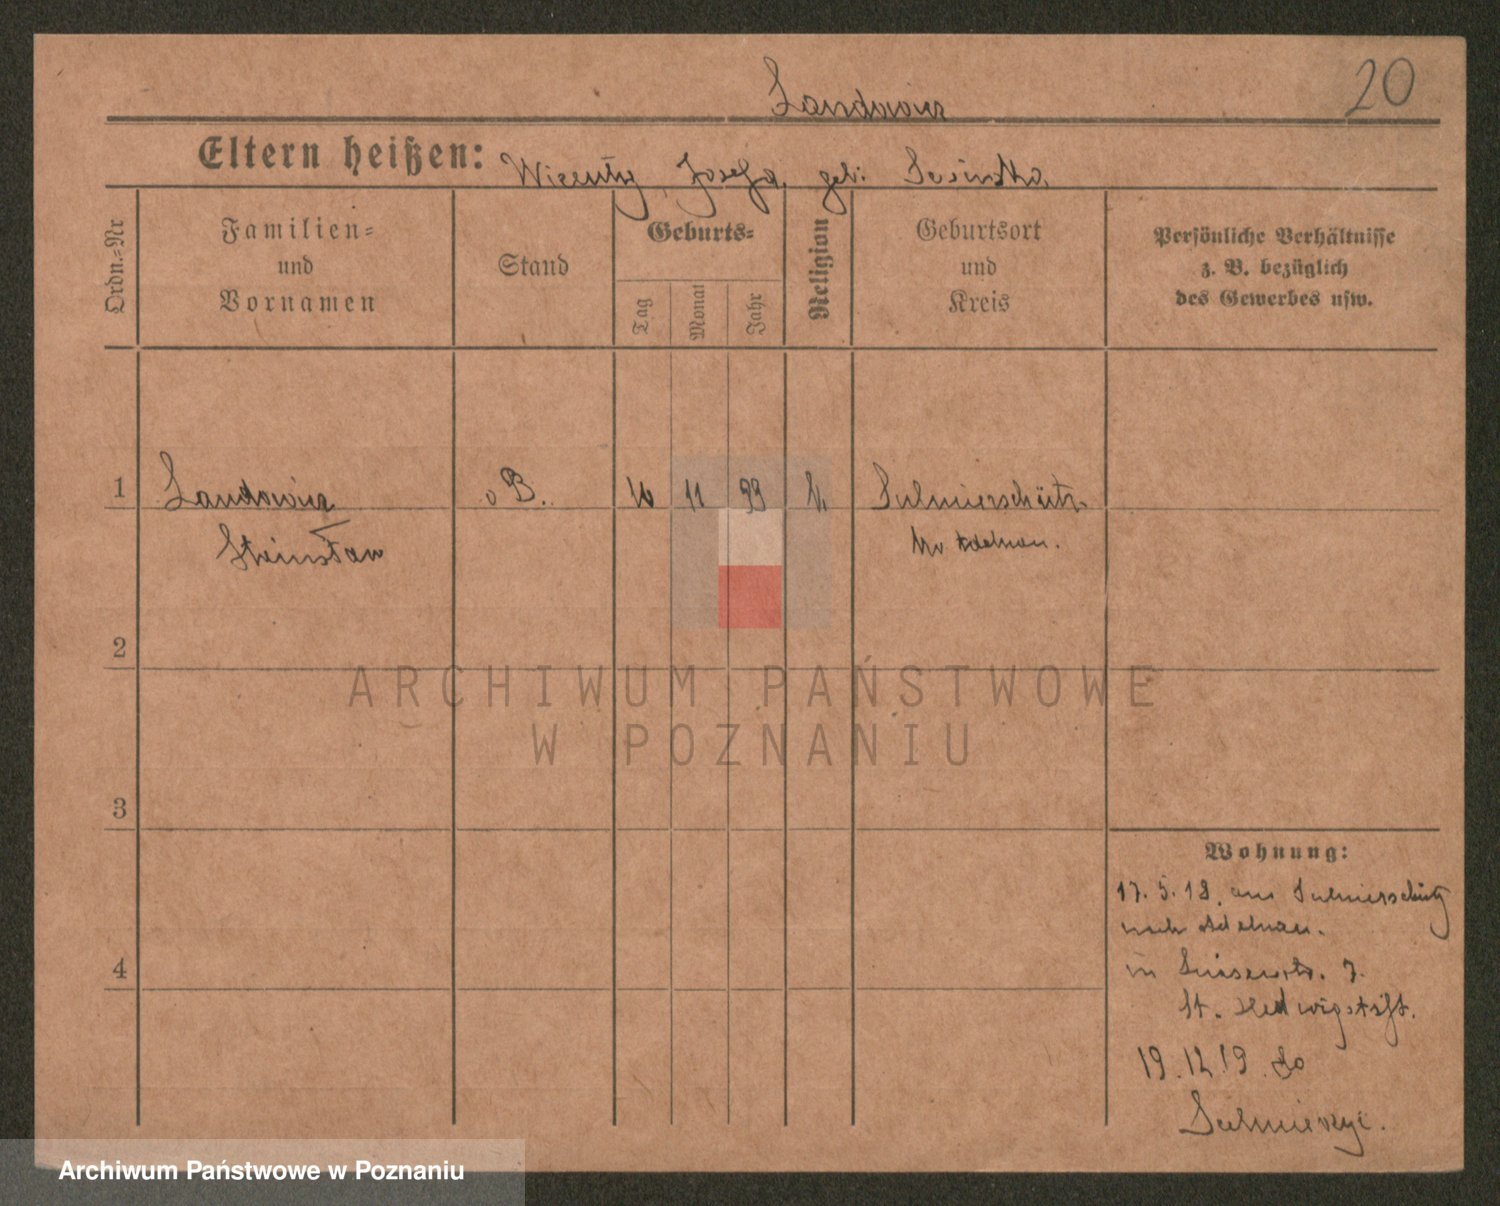 Landowicz
20
Eltern heißen: Wicenty, Josefa, geb.
Ordn.-Nr
Familien-
und
Vornamen
Stand
Geburts-
Tag
Monat
Jahr
Religion
Geburtsort
und
Kreis
Persönliche Verhältnisse
z. B. bezüglich
des Gewerbes usw.
1 Landowicz B. 11 99 k. Sulmierschütz
Stanisław Kr. Adelnau.
2
3
4
Wohnung:
17.5.18. aus Sulmierschütz
nach Adelnau.
in Luisenstr. 7.
St. Hedwigstift.
19.12.19 do
Sulmierzyc.
ARCHIWUM PAŃSTWOWE
W POZNANIU
Archiwum Państwowe w Poznaniu